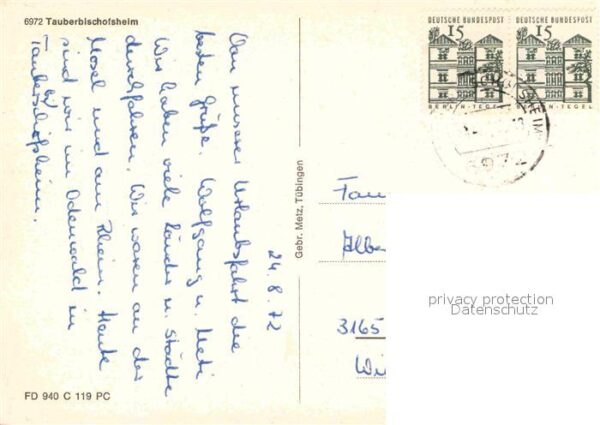 6972 Tauberbischofsheim
24.8.72
Von unserer Urlaubsfahrt die
besten Grüße. Wolfgang u. Meti
Wir haben viele Länder u. Städte
durchfahren. Wir waren an der
Mosel und am Rhein. Heute
sind wir im Odenwald in
Tauberbischofsheim.
FD 940 C 119 PC
Gebr. Metz, Tübingen
DEUTSCHE BUNDESPOST
15
BERLIN-TEGEL
DEUTSCHE BUNDESPOST
15
BERLIN-TEGEL
6972
Fam
Albe
3165
privacy protection
Datenschutz